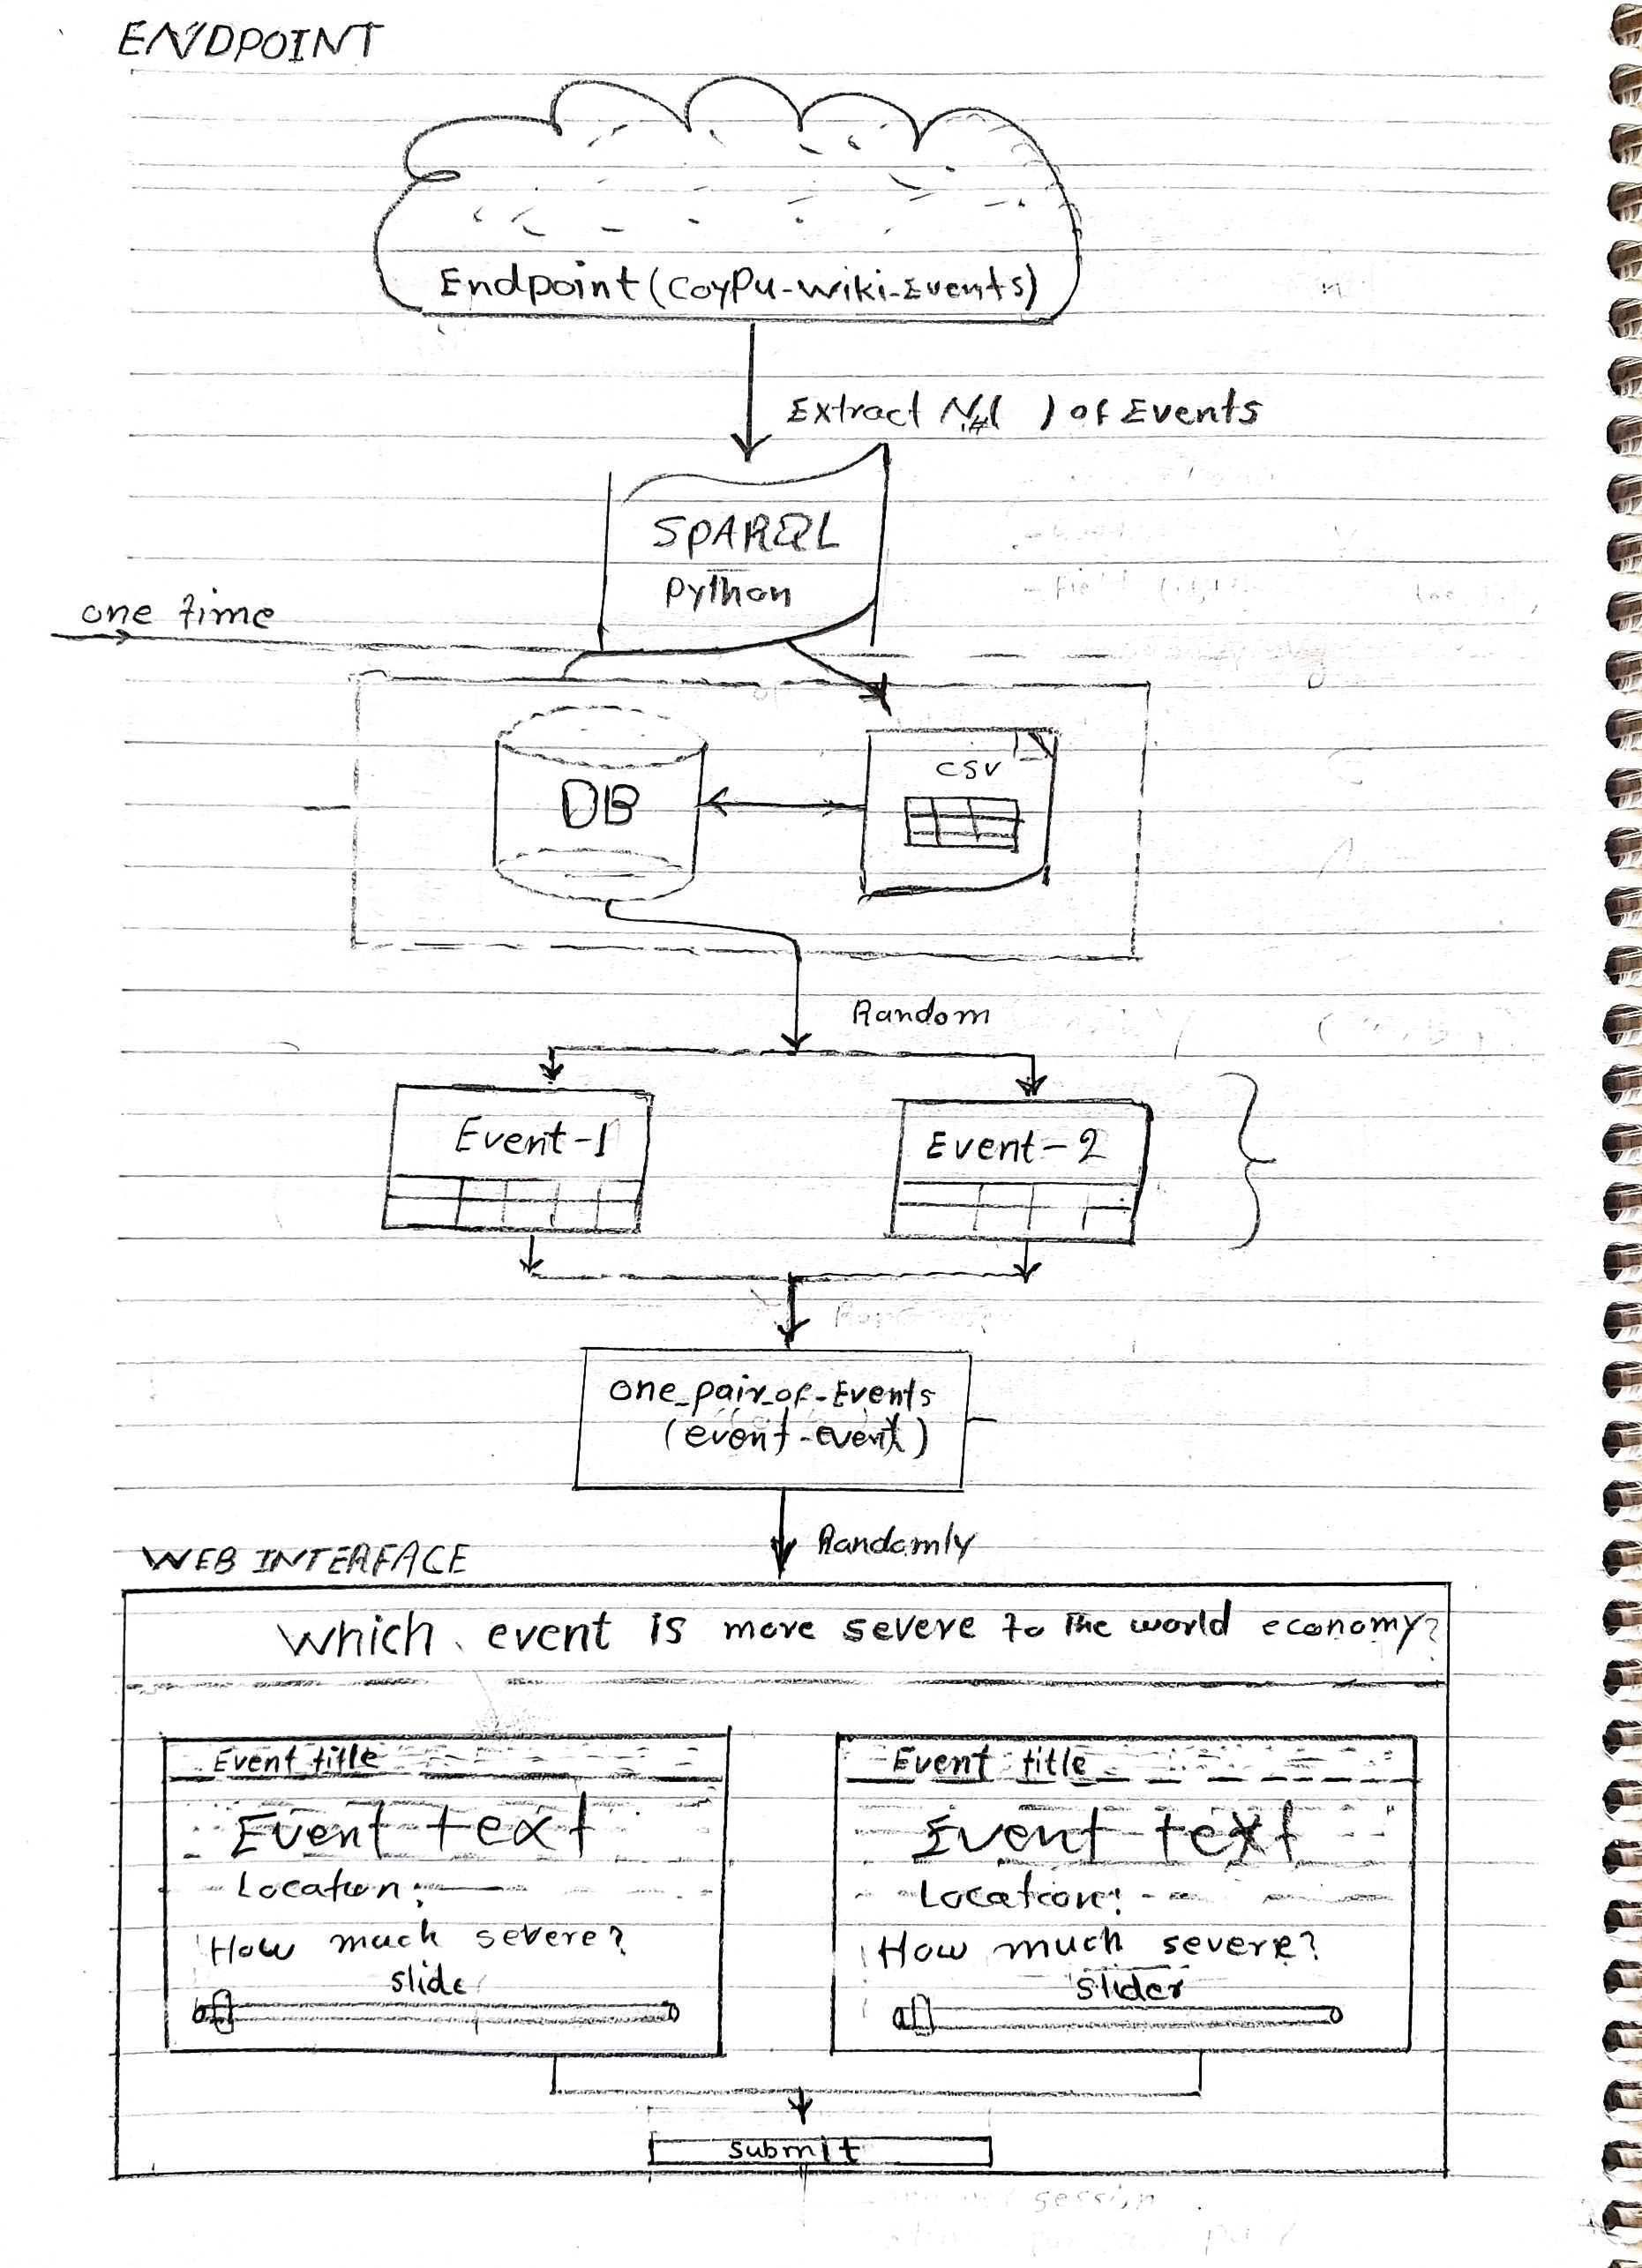 ENDPOINT
Endpoint (CoyPu-Wiki-Events)
Extract ( ) of Events
SPARQL
Python
one time
DB
CSV
Random
Event-1
Event-2
one_pair_of-Events
(event-event)
Randomly
WEB INTERFACE
Which event is more severe to the world economy?
Event title
Event text
Location:
How much severe?
slide
Event title
Event text
Location:
How much severe?
slider
submit
session